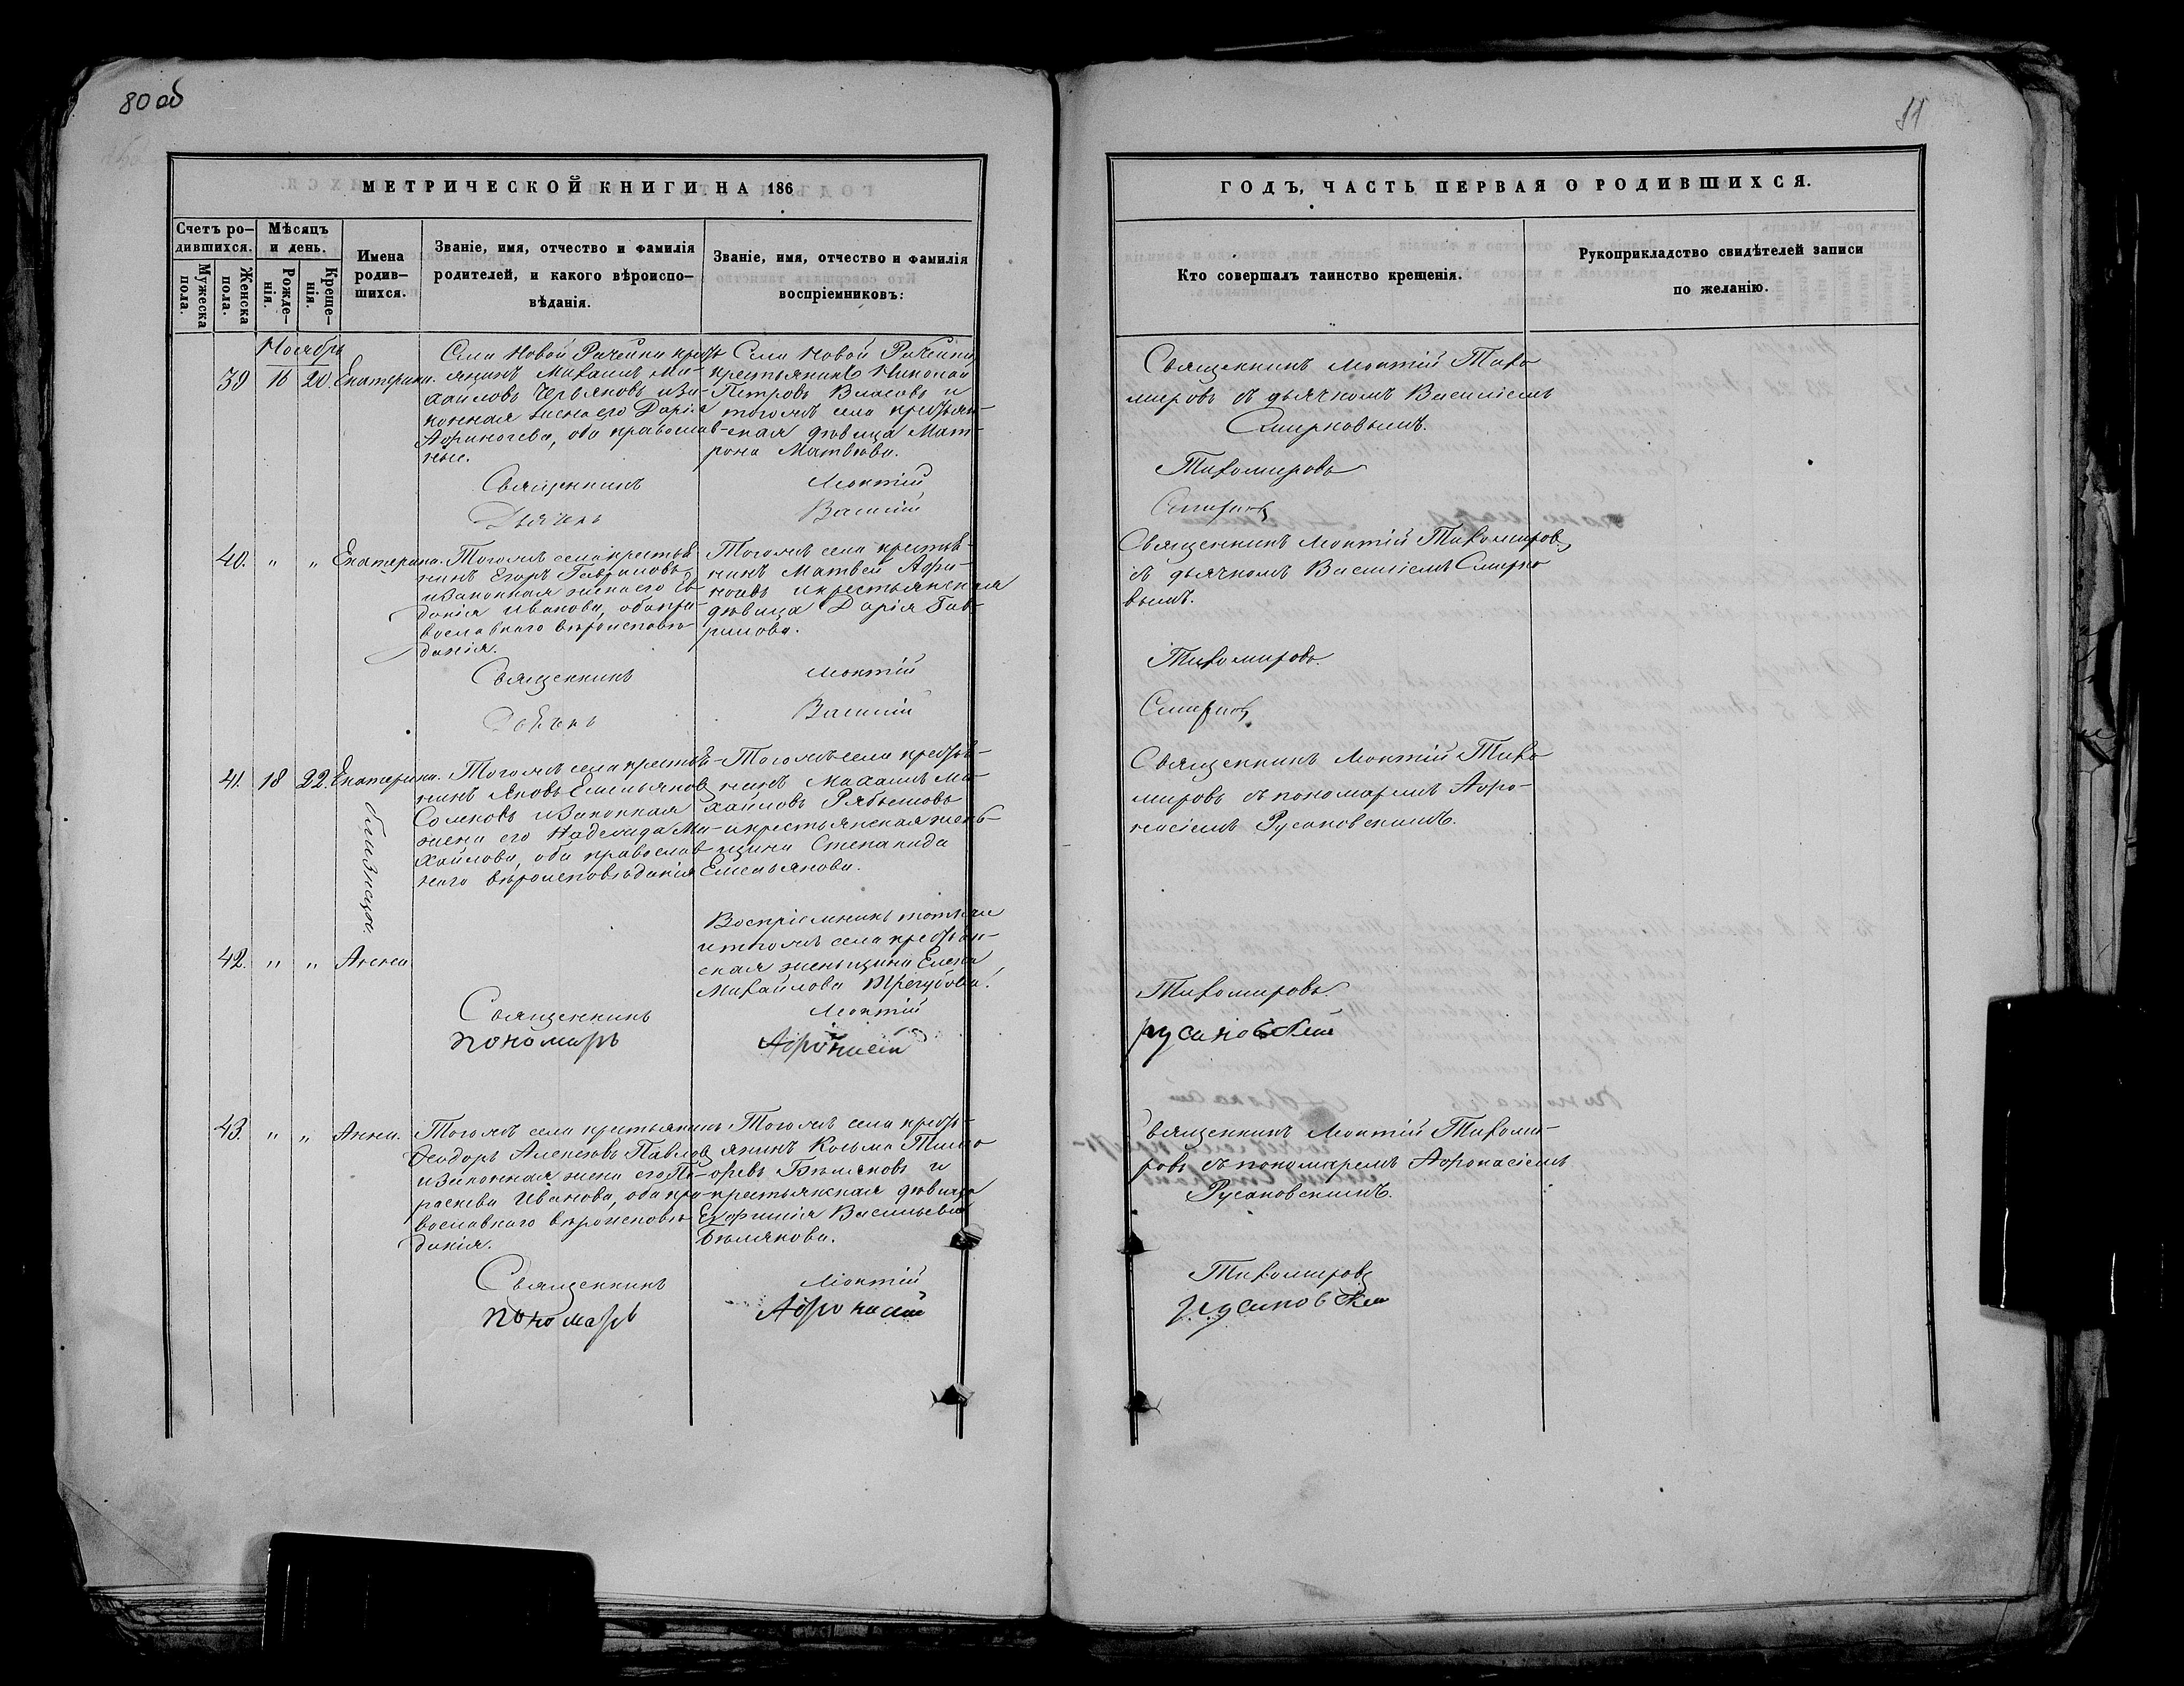 80 об
МЕТРИЧЕСКОЙ КНИГИ НА 186
Счетъ ро-
дившихся.
Мѣсяцъ
и день.
Мужеска
пола.
Женска
пола.
Рожде-
нія.
Креще-
нія.
Имена
родив-
шихся.
Званіе, имя, отчество и фамилія
родителей, и какого вѣроиспо-
вѣданія.
Званіе, имя, отчество и фамилія
воспріемниковъ:
Ноябрь
39 16 20. Екатерина.
Села Новой Рачейки кресть
янинъ Михаилъ Ми-
хайловъ Червяковъ и за-
конная жена его Дарія
Афиногева, оба православ-
ные.
Села Новой Рачейки
крестьянинъ Николай
Петровъ Власовъ и
тогожъ села крестьян-
ская дѣвица Мат-
рона Матвѣева.
Священникъ Леонтій
Дьячекъ Василій
40. " " Екатерина.
Тогожъ села крестья-
нинъ Егоръ Гавриловъ
и законная жена его Ев
докія Иванова, оба пра-
вославнаго вѣроисповѣ-
данія.
Тогожъ села крестья-
нинъ Матвей Афи-
ногевъ и крестьянская
дѣвица Дарія Гав-
рилова.
Священникъ Леонтій
Дьячекъ Василій
41. 18 22. Екатерина.
близнецы.
Тогожъ села крестья-
нинъ Яковъ Емельяновъ
и законная
жена его Надежда Ми-
хайлова, оба православ
наго вѣроисповѣданія
Тогожъ села крестья-
нинъ Михаилъ Ми-
хайловъ Рябышовъ
и крестьянская жен-
щина Степанида
Емельянова.
42. " " Анна
Воспріемникъ тотъ же
и тогожъ села крестьян-
ская женьщина Елена
Михайлова Трегубова.
Священникъ Леонтій
пономарь Афонасій
43. " " Анна.
Тогожъ села крестьянинъ
Ѳеодоръ Алексѣевъ Павловъ
и законная жена его Па-
раскева Иванова, оба пра-
вославнаго вѣроисповѣ-
данія.
Тогожъ села кресть-
янинъ Козьма Тимо
ѳеевъ Бѣляковъ и
крестьянская дѣвица
Евфимія Васильева
Бѣлякова.
Священникъ Леонтій
пономарь Афонасій
81
ГОДЪ, ЧАСТЬ ПЕРВАЯ О РОДИВШИХСЯ.
Кто совершалъ таинство крещенія.
Рукоприкладство свидѣтелей записи
по желанію.
Священникъ Леонтій Тихо
мировъ съ дьячкомъ Василіемъ
Смирновымъ.
Тихомировъ
Смирновъ
Священникъ Леонтій Тихомировъ
съ дьячкомъ Василіемъ Смирно
вымъ.
Тихомировъ.
Смирновъ
Священникъ Леонтій Тихо
мировъ съ пономаремъ Афо-
насіемъ Русановскимъ.
Тихомировъ.
русановскій
Священникъ Леонтій Тихоми-
ровъ съ пономаремъ Афонасіемъ
Русановскимъ.
Тихомировъ
русановскій